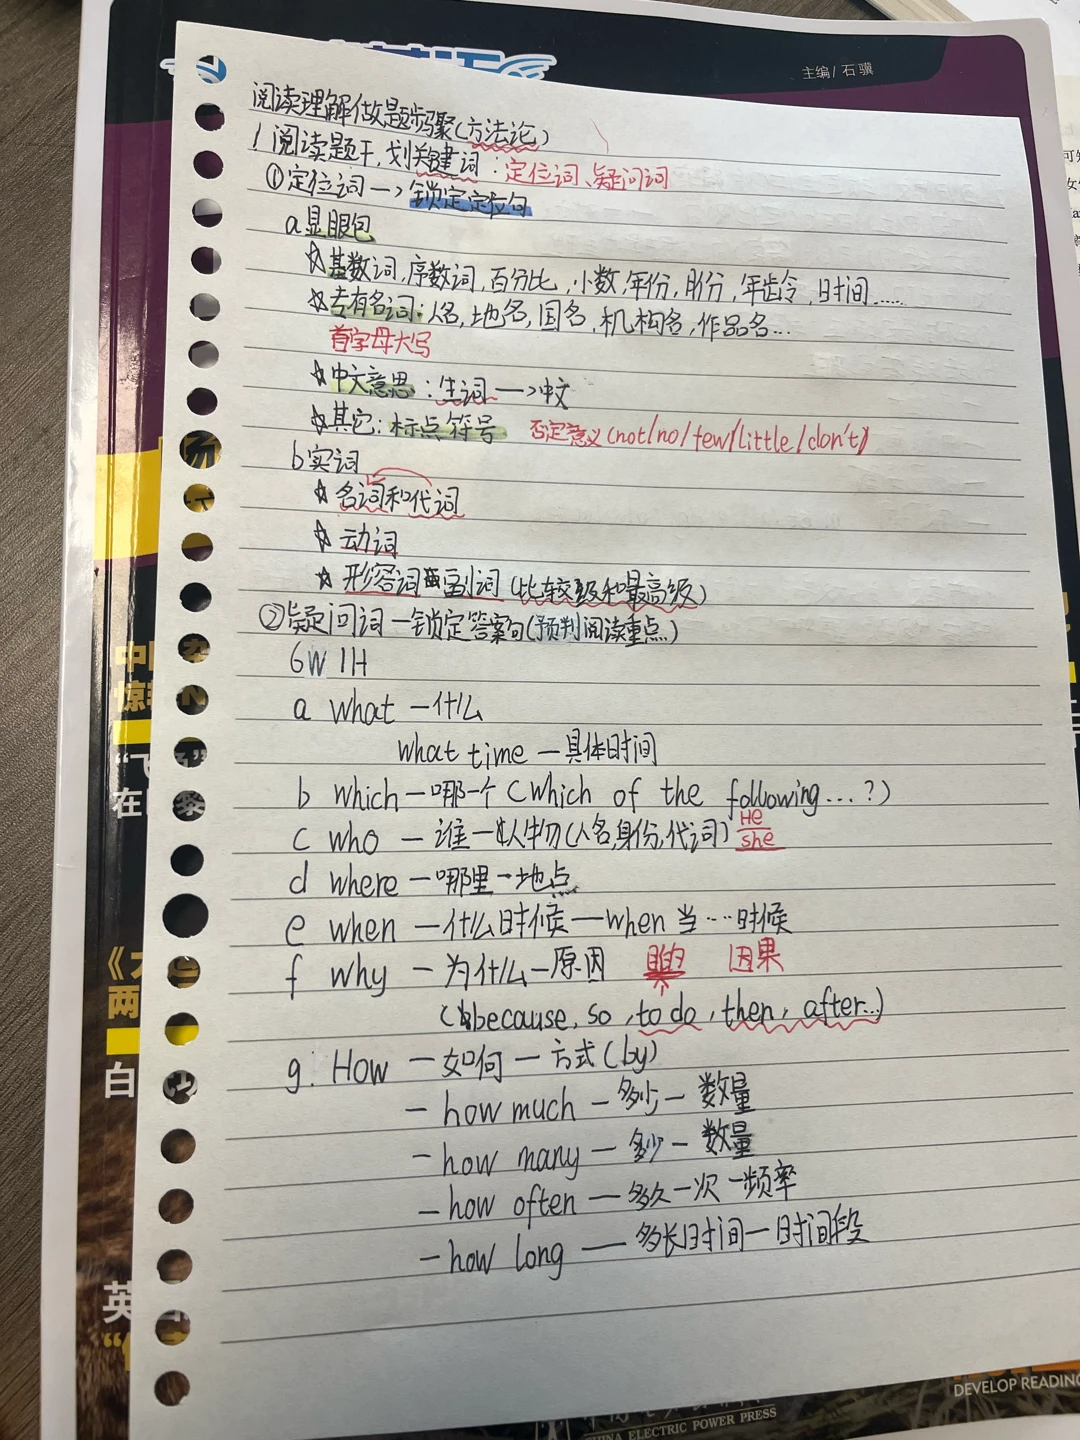 主编/石骥
阅读理解做题步骤(方法论)
1 阅读题干,划关键词:定位词、疑问词
①定位词—>锁定定位句
a显眼包
☆基数词,序数词,百分比,小数,年份,月份,年龄,时间……
☆专有名词:人名,地名,国名,机构名,作品名…
首字母大写
☆中文意思:生词—>中文
☆其它:标点符号 否定意义(not/no/few/little/don't)
b实词
☆名词和代词
☆动词
☆形容词和副词(比较级和最高级)
②疑问词—锁定答案句(预判阅读重点)
6W 1H
a what —什么
what time —具体时间
b which—哪一个(which of the following…?)
c who —谁—人物(人名,身份,代词) He
she
d where—哪里—地点
e when —什么时候—when当…时候
f why —为什么—原因 目的 因果
(because, so, to do, then, after…)
g. How —如何—方式(by)
— how much — 多少— 数量
— how many — 多少— 数量
— how often — 多久一次—频率
— how long — 多长时间—时间段
中
惊
"飞
在 黎
《大
两
白
英
DEVELOP READING
CHINA ELECTRIC POWER PRESS